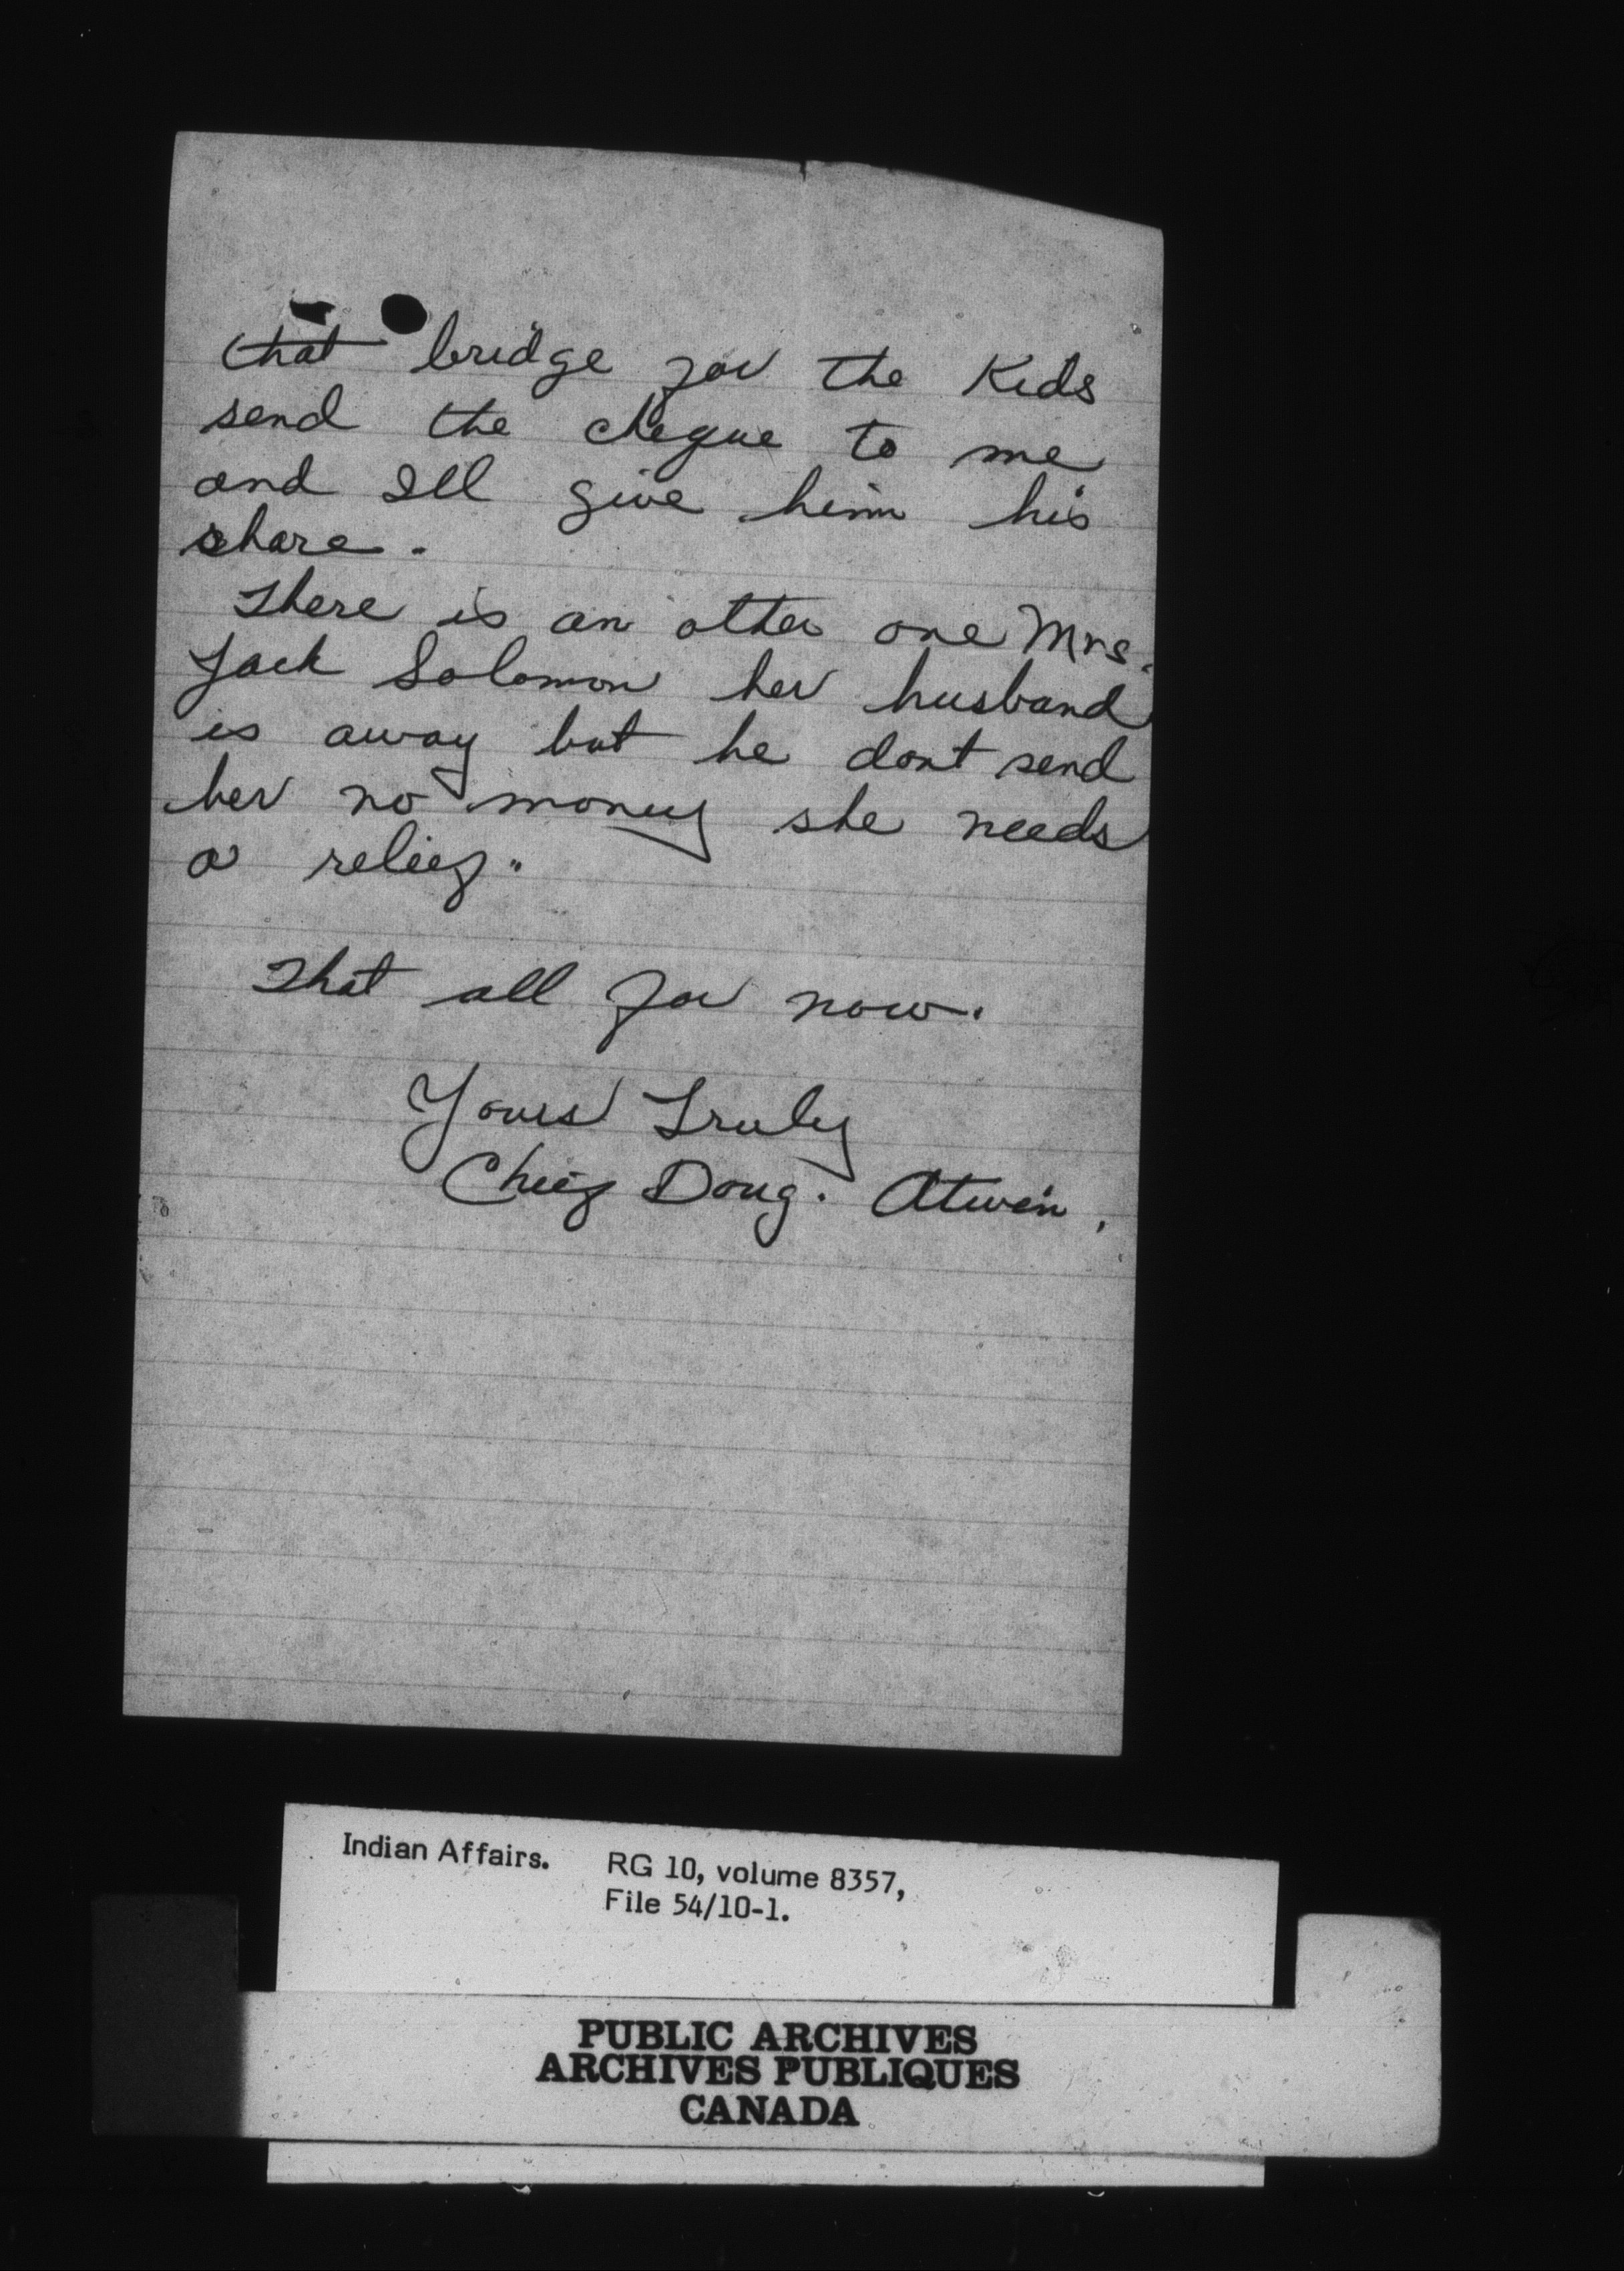 that bridge for the Kids
send the cheque to me
and Ill give him his
share.
There is an other one Mrs.
Jack Solomon her husband
is away but he dont send
her no money she needs
a relief.
That all for now.
Yours Truly
Chief Doug. Atwin.
Indian Affairs. RG 10, volume 8357,
File 54/10-1.
PUBLIC ARCHIVES
ARCHIVES PUBLIQUES
CANADA